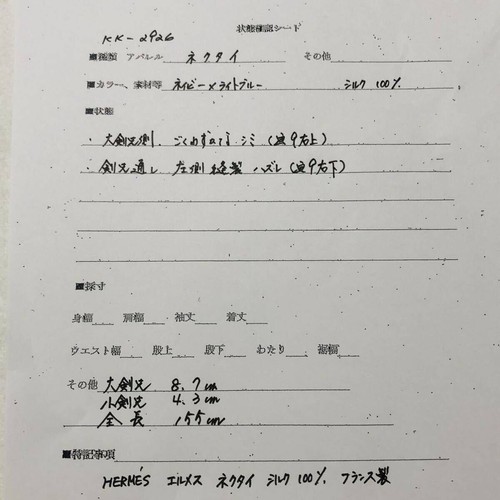 状態確認シート
KK-2926
■種類 アパレル ネクタイ その他
■カラー、素材等 ネイビー×ライトブルー シルク 100%
■状態
・大剣先側、ごくわずかなシミ(追9右上)
・剣先通し 左側縫製 ハズレ(追9右下)
■採寸
身幅 肩幅 袖丈 着丈
ウエスト幅 股上 股下 わたり 裾幅
その他 大剣先 8.7cm
小剣先 4.3cm
全長 155cm
■特記事項
HERMÈS エルメス ネクタイ シルク100% フランス製